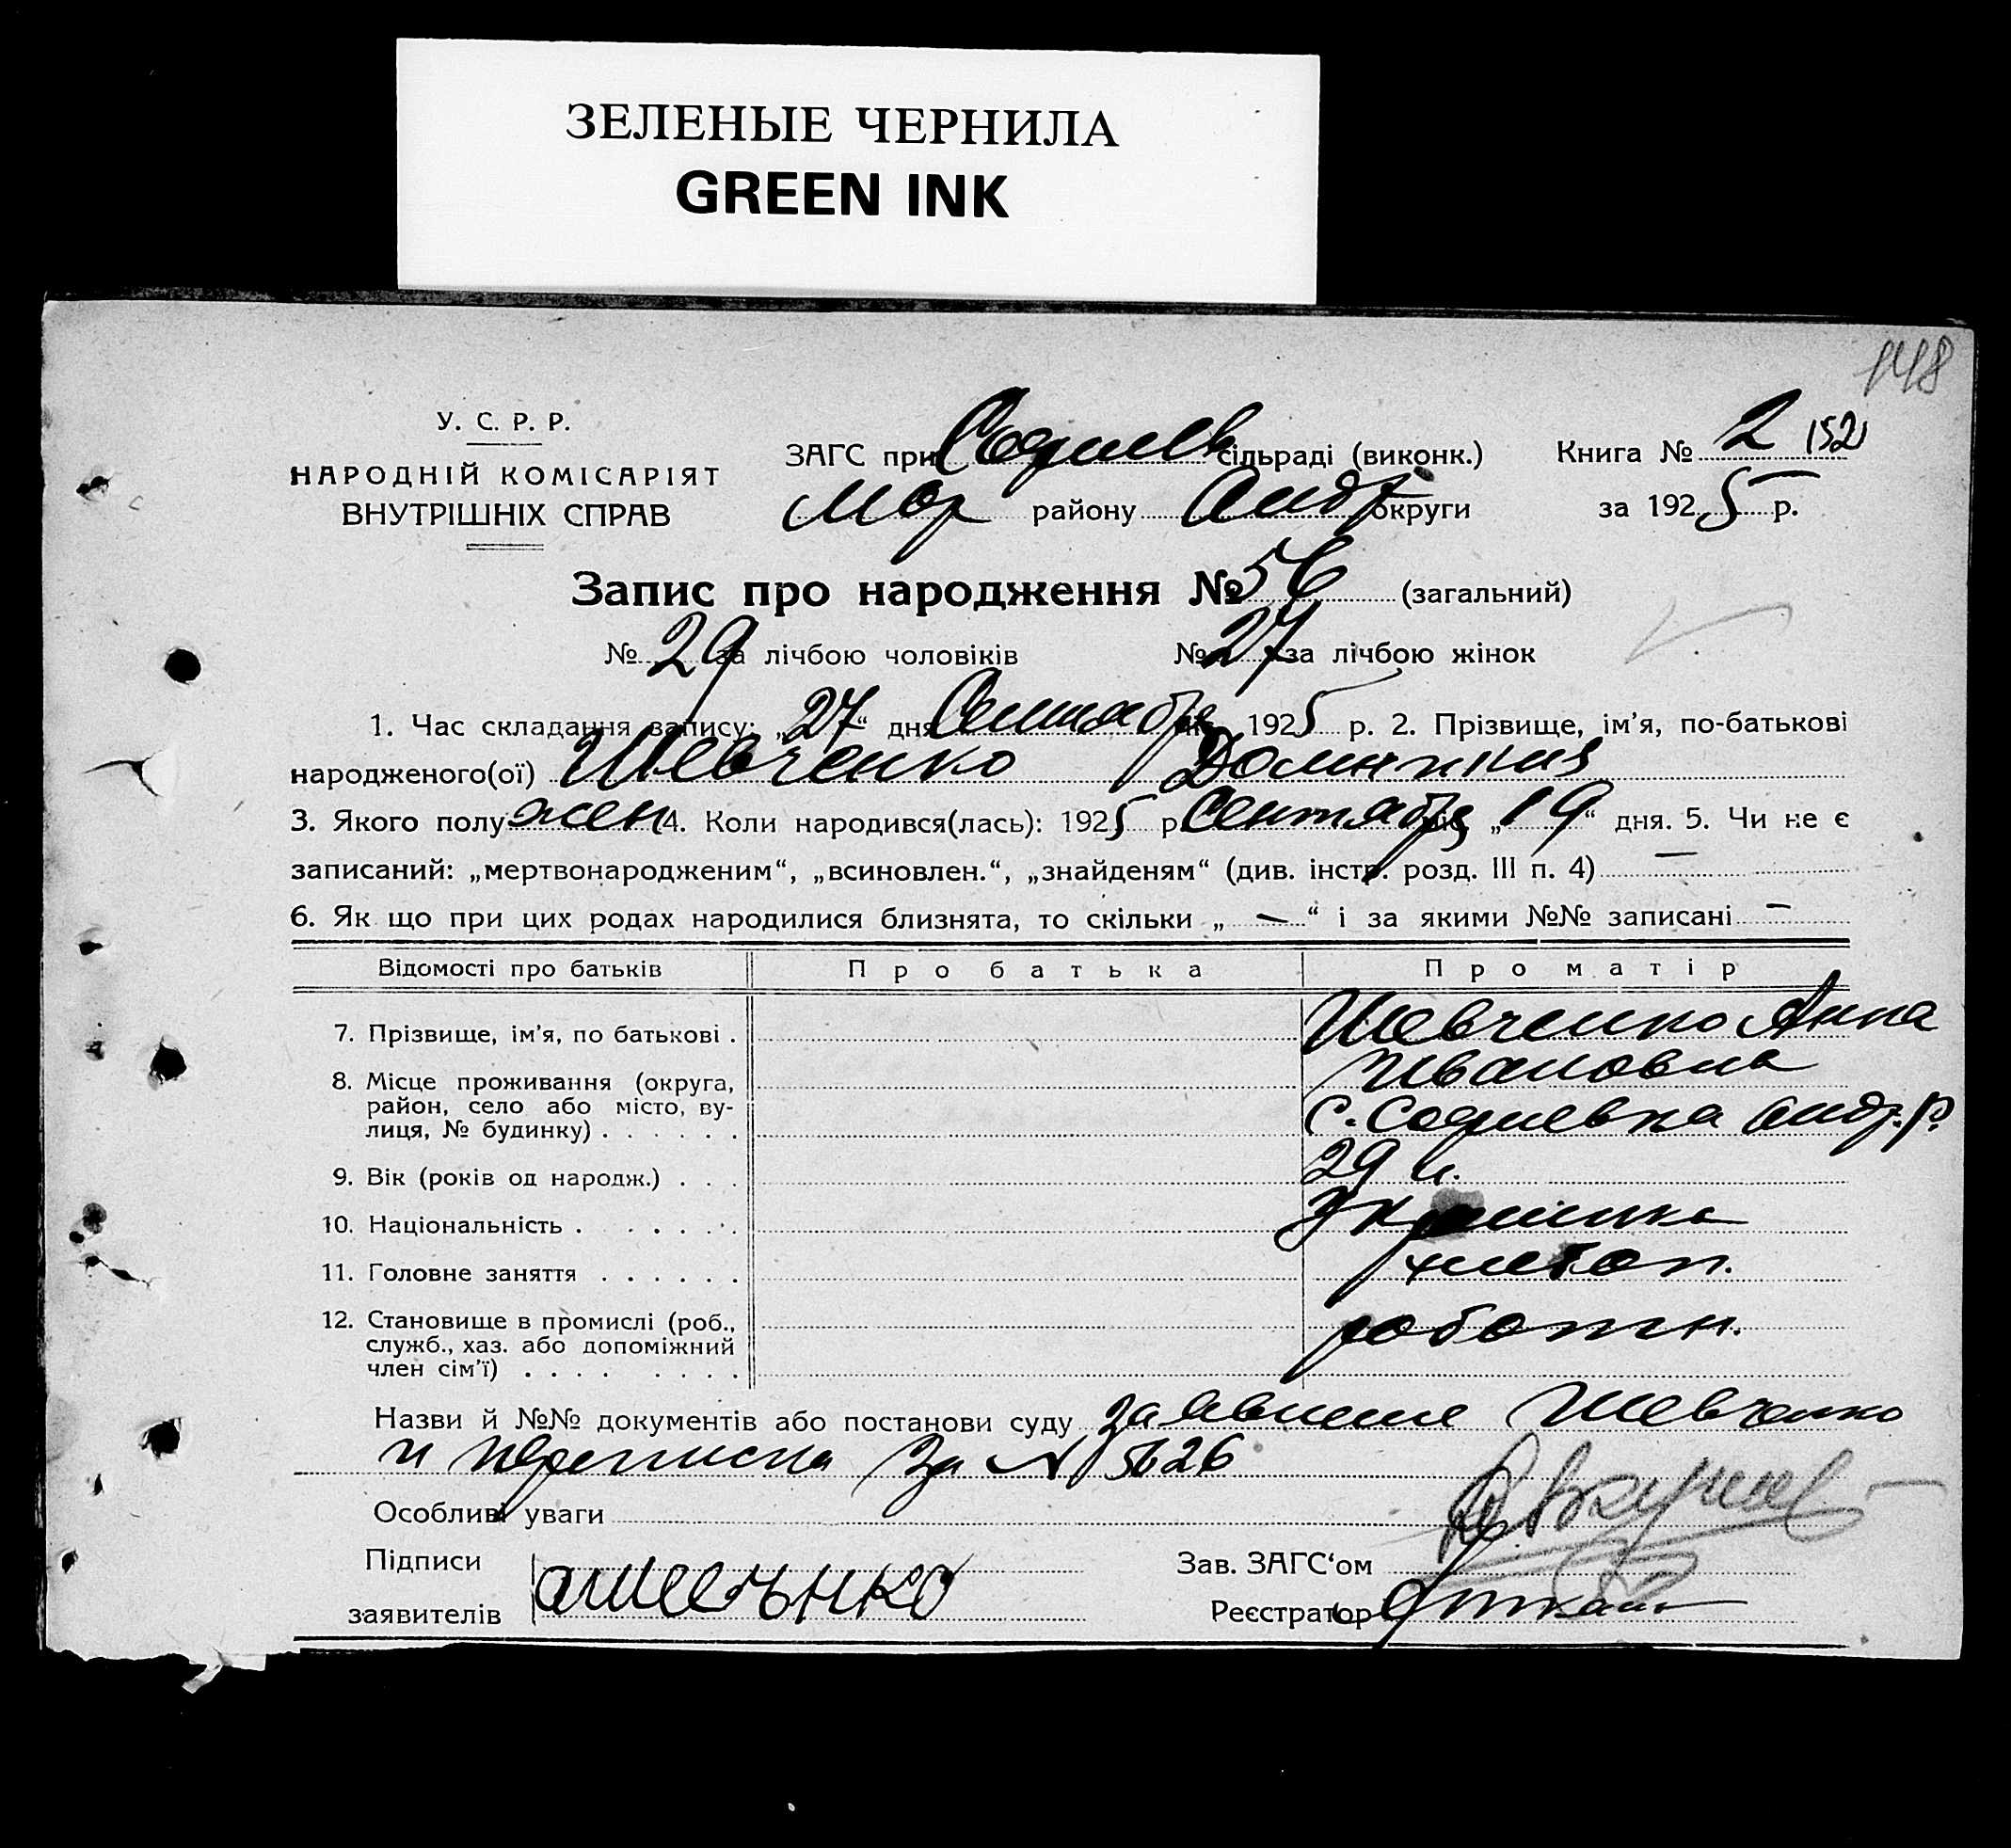 ЗЕЛЕНЫЕ ЧЕРНИЛА
GREEN INK
148
У. С. Р. Р.
НАРОДНІЙ КОМІСАРІЯТ
ВНУТРІШНІХ СПРАВ
ЗАГС при сільраді (виконк.) Книга № 2 152
району округи за 1925 р.
Запис про народження № 56 (загальний)
№ 29 за лічбою чоловіків № 27 за лічбою жінок
1. Час складання запису: „27“ дня Сентября 1925 р. 2. Прізвище, ім’я, по-батькові
народженого(ої) Шевченко
3. Якого полу жен 4. Коли народився(лась): 1925 р. Сентября „19“ дня. 5. Чи не є
записаний: „мертвонародженим“, „всиновлен.“, „знайденям“ (див. інстр. розд. III п. 4) —
6. Як що при цих родах народилися близнята, то скільки „—“ і за якими №№ записані —
Відомості про батьків Про батька Про матір
7. Прізвище, ім’я, по батькові . Шевченко Анна
Ивановна
8. Місце проживання (округа,
район, село або місто, ву-
лиця, № будинку) . . . . . . с.
9. Вік (років од народж.) . . . 29 л.
10. Національність . . . . . . Украинка
11. Головне заняття . . . . . . хлебоп.
12. Становище в промислі (роб.,
служб., хаз. або допоміжний
член сім’ї) . . . . . . . . работн.
Назви й №№ документів або постанови суду заявление Шевченко
и переписка за № 5626
Особливі уваги
Підписи Зав. ЗАГС‘ом
заявителів Реєстратор